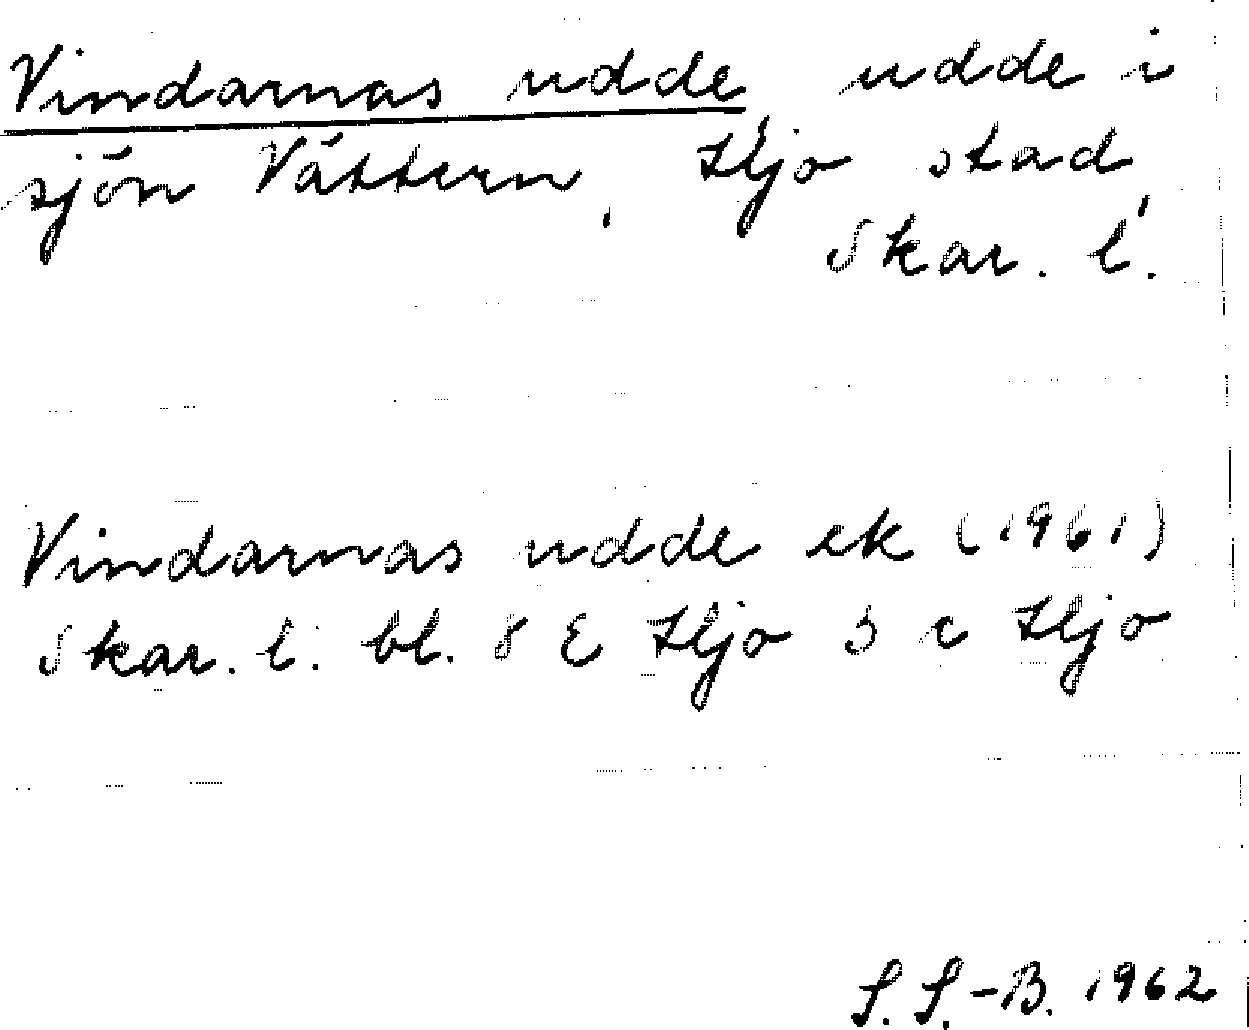 Vindarnas udde, udde i
sjön Vättern, Hjo stad,
Skar. l.
Vindarnas udde ek (1961)
Skar. l. bl. 8 E Hjo 3 c Hjo
S. S.-B. 1962